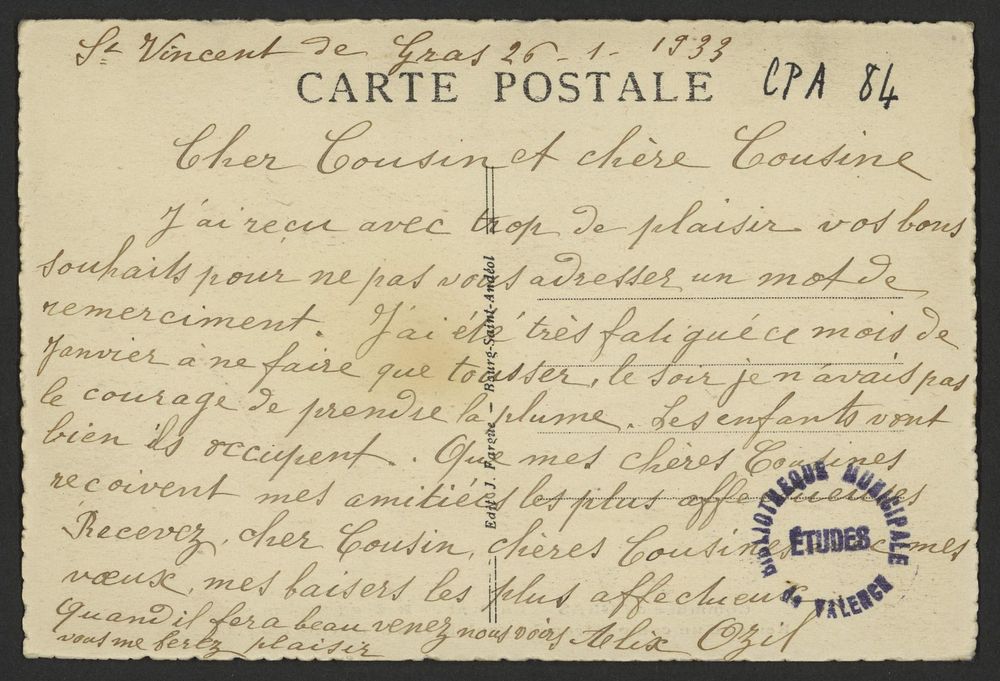 St Vincent de Gras 26-1-1933
CARTE POSTALE
CPA 84
Cher Cousin et chère Cousine
J'ai reçu avec trop de plaisir vos bons
souhaits pour ne pas vous adresser un mot de
remerciment. J'ai été très fatigué ce mois de
Janvier à ne faire que tousser, le soir je n'avais pas
le courage de prendre la plume. Les enfants vont
bien ils occupent. Que mes chères Cousines
recoivent mes amitiées les plus affectueuses
Recevez, cher Cousin, chères Cousines mes
vœux, mes baisers les plus affectueux
Quand il fera beau venez nous voir Alix Ozil
vous me ferez plaisir
Edit. J. Fargue - Bourg-Saint-Andéol
BIBLIOTHEQUE MUNICIPALE
ÉTUDES
de VALENCE